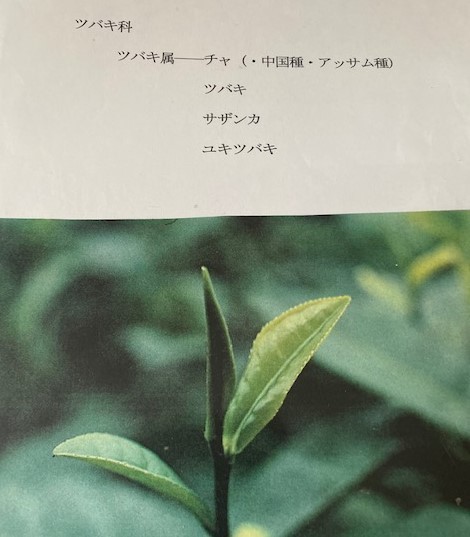 ツバキ科
ツバキ属――チャ（・中国種・アッサム種）
ツバキ
サザンカ
ユキツバキ